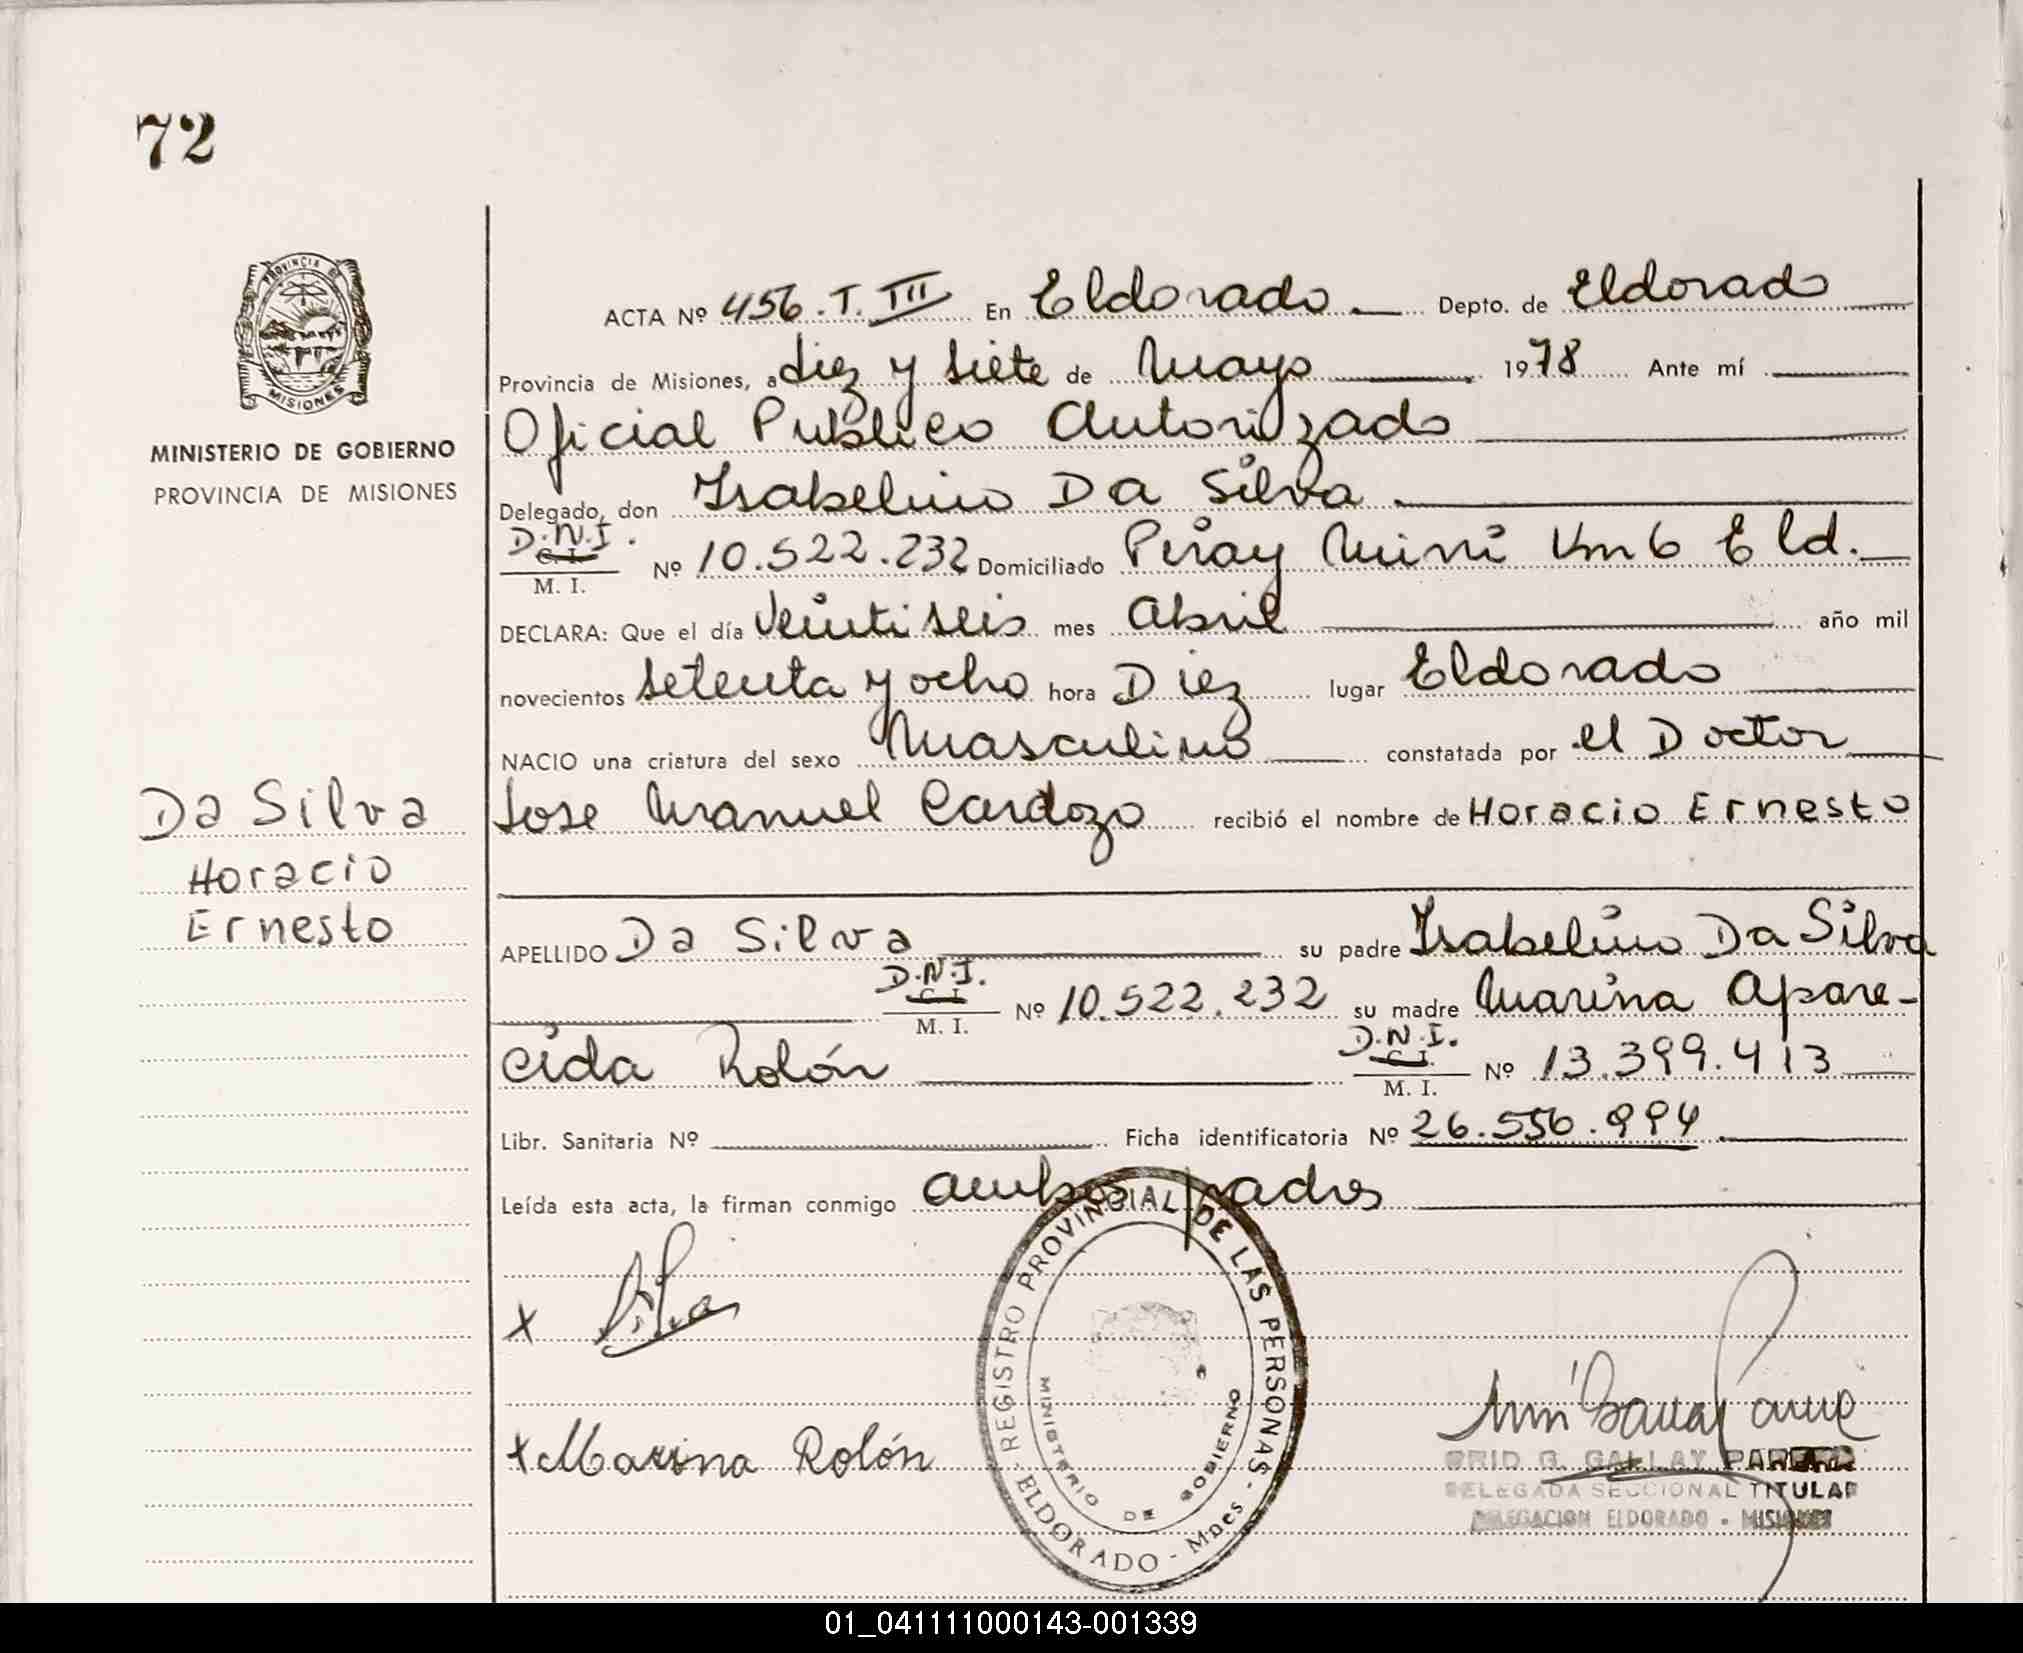 72
PROVINCIA DE
MISIONES
MINISTERIO DE GOBIERNO
PROVINCIA DE MISIONES
ACTA Nº 456. T. III En Eldorado Depto. de Eldorado
Provincia de Misiones, a diez y siete de Mayo 1978 Ante mí
Oficial Publico Autorizado
Delegado, don Isabelino Da Silva
D.N.I.
C. I.
M. I. Nº 10.522.232 Domiciliado Piray Mini Km 6 Eld.
DECLARA: Que el día Veintiseis mes Abril año mil
novecientos setenta y ocho hora Diez lugar Eldorado
NACIO una criatura del sexo Masculino constatada por el Doctor
Jose Manuel Cardozo recibió el nombre de Horacio Ernesto
Da Silva
Horacio
Ernesto
APELLIDO Da Silva su padre Isabelino Da Silva
D.N.I.
C. I.
M. I. Nº 10.522.232 su madre Marina Apare-
cida Rolón D.N.I.
C. I.
M. I. Nº 13.399.413
Libr. Sanitaria Nº Ficha identificatoria Nº 26.556.994
Leída esta acta, la firman conmigo ambos padres
x Silva
x Marina Rolón
REGISTRO PROVINCIAL DE LAS PERSONAS
MINISTERIO DE GOBIERNO
ELDORADO - Mnes
G. GALLAY
DELEGADA SECCIONAL TITULAR
DELEGACION ELDORADO - MISIONES
01_041111000143-001339